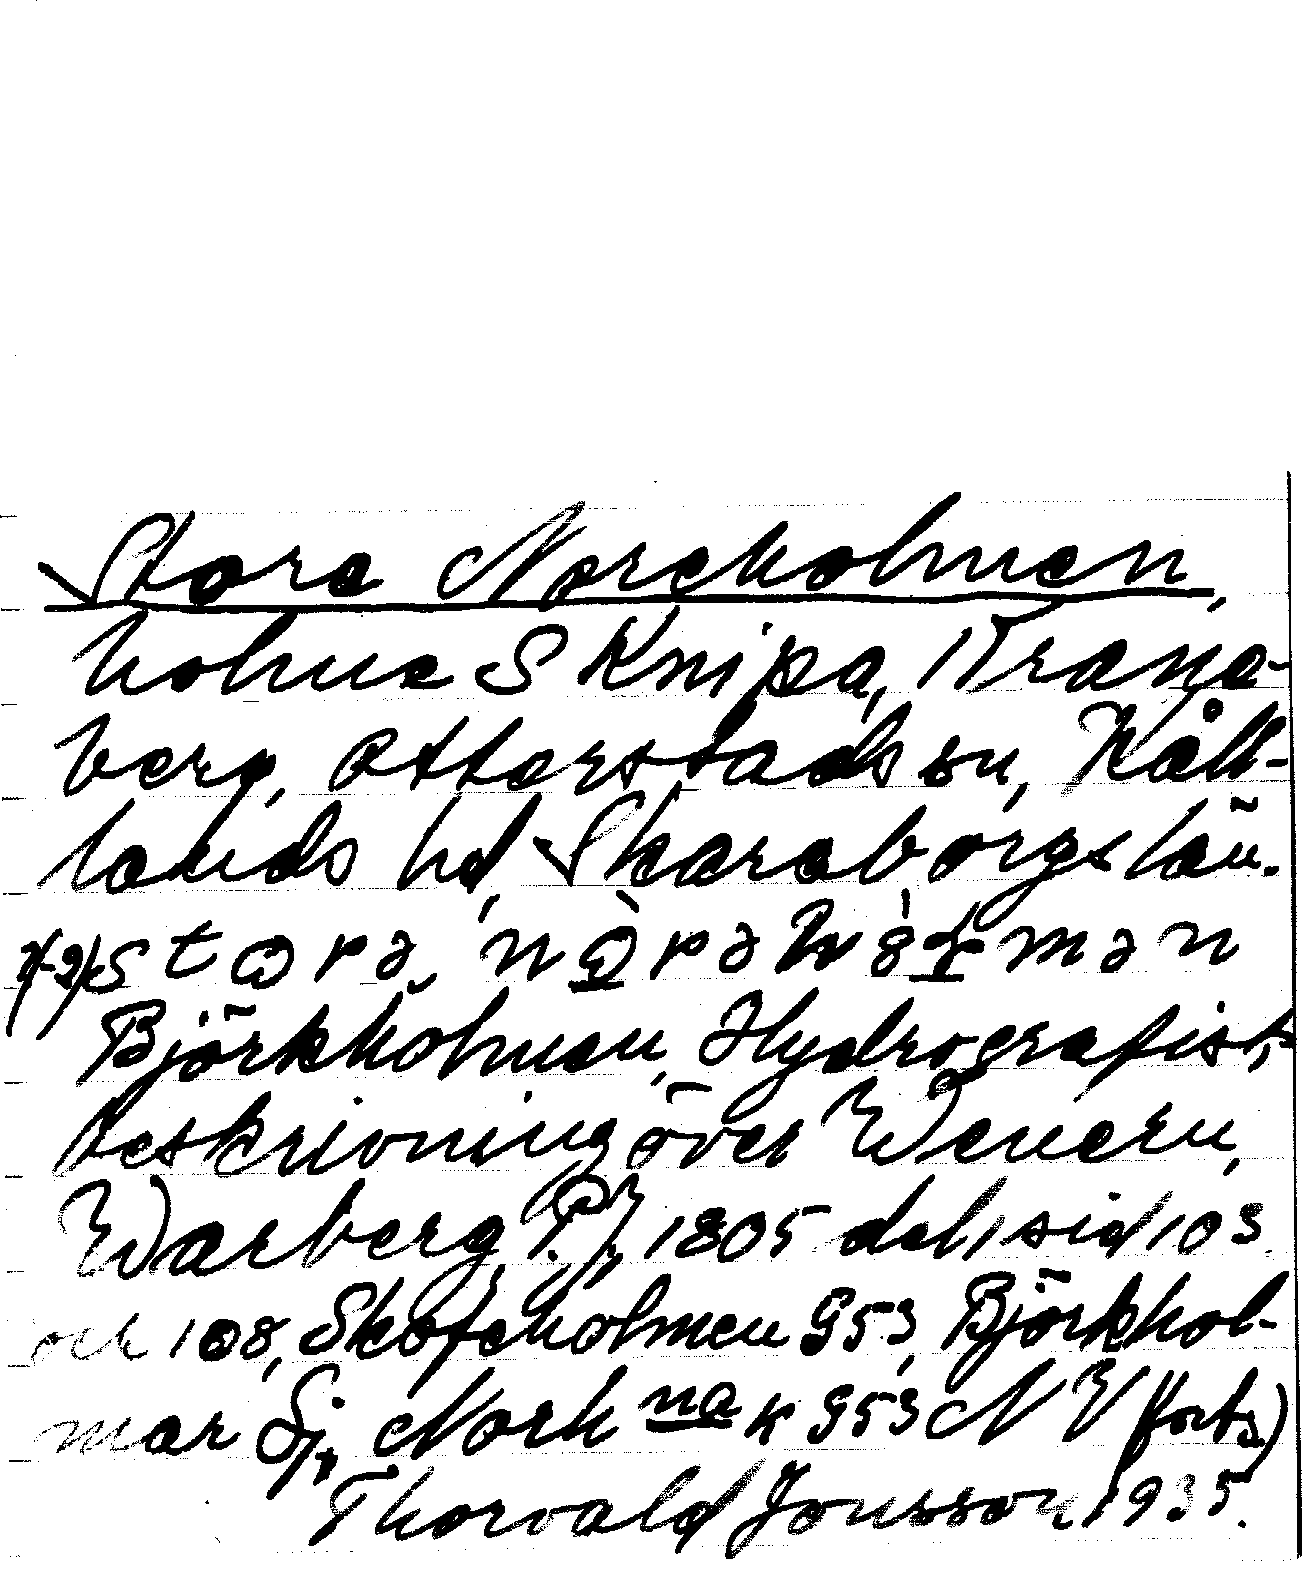 Stora Noreholmen,
holme S Knipa, Trana-
berg, Otterstads sn, Kål-
lands hd, Skaraborgs län.
Björkholmen, Hydrografisk
beskrivning över Wenern,
Warberg, P. J, 1805 del 1 sid 103
och 108, Skofteholmen 953, Björkhol-
mar Sj, Norh na k 953 N V (forts)
Thorvald Jonsson 1935.